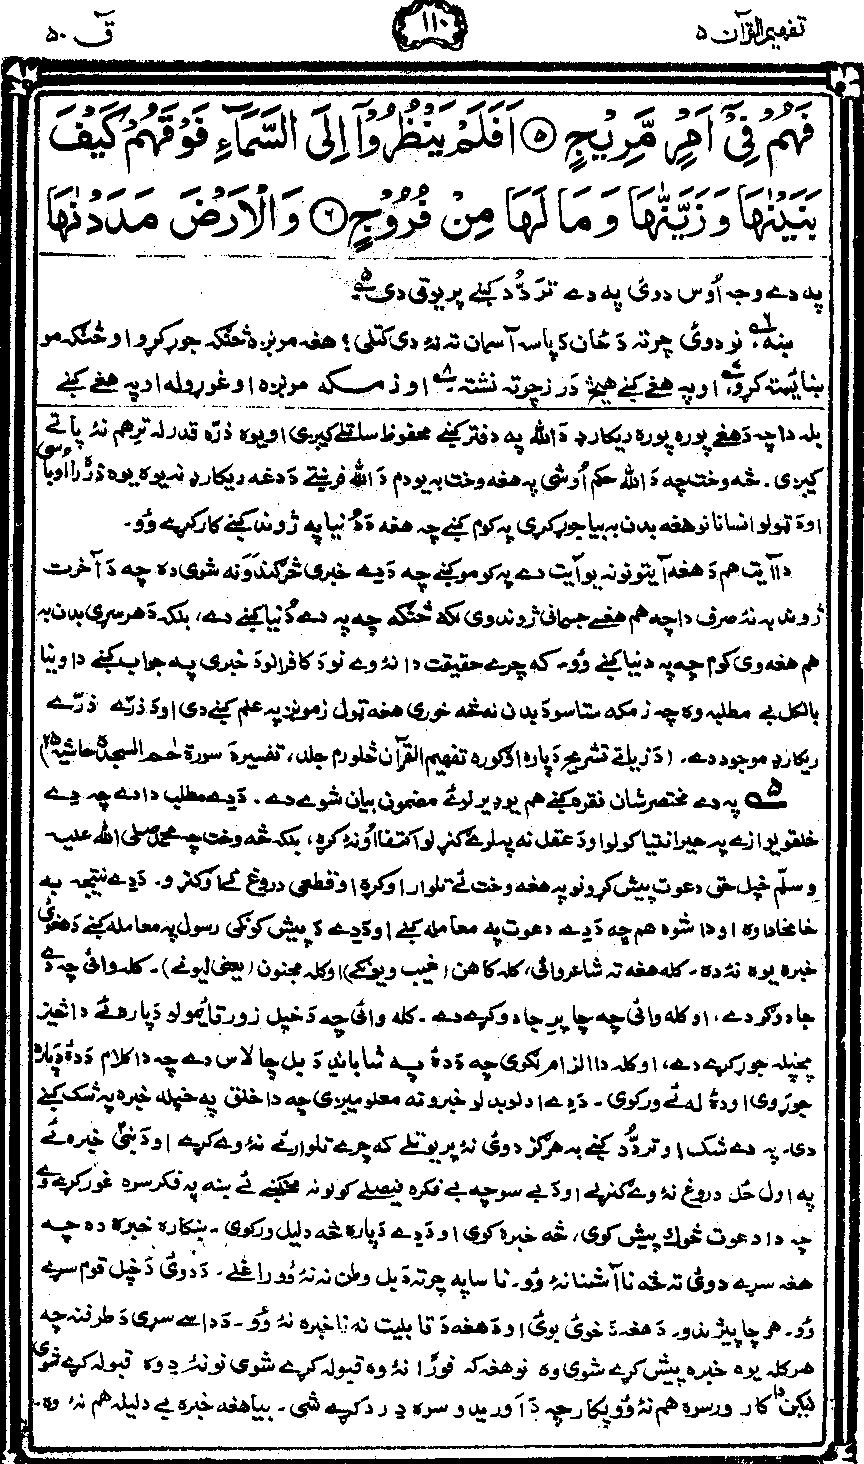 تفهیم القرآن ۵
۱۱۰
قٓ ۵۰
فَهُمْ فِیْۤ اَمْرٍ مَّرِیْجٍ ۝۵ اَفَلَمْ یَنْظُرُوْۤا اِلَی السَّمَآءِ فَوْقَهُمْ كَیْفَ
بَنَیْنٰهَا وَ زَیَّنّٰهَا وَ مَا لَهَا مِنْ فُرُوْجٍ ۝۶ وَ الْاَرْضَ مَدَدْنٰهَا
په دے وجہ اُوس دوئی په دے تردُّد کښے پریوتی دی ۵
ښه، نو دوئی چرته دَ ځان دَپاسه آسمان ته نهٔ دی کتلی؟ هغه مونږه څنګه جوړ کړو او څنګه مو
ښائسته کړو ۷، او په هغے کښے هیڅ درز چرته نشته ۸ او زمکه مونږه اوغوړوله او په هغے کښے
بله دا چه دَهغے پوره پوره ریکارډ دَ الله په دفتر کښے محفوظ ساتلے کیږی او یوه ذرّه قدرله ترهم نهٔ پاتے
کیږی. څه وخت چه دَ الله حکم اُوشی په هغه وخت به یودم دَ الله فریښتے دَ دغه ریکارډ نه یوه یوه ذرّه را اُوباسی
او دَ ټولو انسانانو هغه بدن به بیا جوړ کړی په کوم کښے چه هغه دَ دُنیا په ژوند کښے کار کړے وُو۔
دا آیت هم دَ هغه آیتونو نه یو آیت دے په کومو کښے چه دَ دے خبرے څرګندوَنه شوی ده چه دَ آخرت
ژوند به نهٔ صرف دا چه هم هغسے جسمانی ژوند وی لکه څنګه چه په دے دُنیا کښے دے، بلکه دَ هر سړی بدن به
هم هغه وی کوم چه په دنیا کښے وُو۔ که چرے حقیقت دا نهٔ وے نو دَ کافرانو دَ خبرے په جواب کښے دا وینا
بالکل بے مطلبه وه چه زمکه ستاسو دَ بدن نه څه خوری هغه ټول زمونږ په علم کښے دی او دَ ذرّے ذرّے
ریکارډ موجود دے. (دَ زیاتے تشریح دَپاره اوګوره تفهیم القرآن څلورم جلد، تفسیر دَ سورة حٰم السجدة حاشیه ۲۵)
۵ په دے مختصر شان فقره کښے هم یو ډیر لوئے مضمون بیان شوے دے. دَ دے مطلب دا دے چه دے
خلقو یوازے په حیرانتیا کولو او دَ عقل نه په لرے ګنړلو اکتفا اُونهٔ کړه، بلکه څه وخت چه محمد صلی الله علیه
وسلّم خپل حق دعوت پیش کړو نو په هغه وخت ئے تلوار اوکړو او قطعی دروغ ئے اوګنړو. دَ دے نتیجه به
خامخا دا وه او دا شوه هم چه دَ دے دعوت په معامله کښے او دَ دے دَ پیش کونکی رسول په معامله کښے دَ هغوئی
خبره یوه نهٔ ده. کله هغه ته شاعر وائی، کله کاهن (غیب ویونکے) او کله مجنون (یعنی لیونے). کله وائی چه دے
جادوګر دے، او کله وائی چه چا پرے جادو کړے دے. کله وائی چه دَ خپل زور تا یمولو دَپاره ئے دا څیز
پخپله جوړ کړے دے، او کله دا الزام لګوی چه دَ دهٔ په شا باندے دَ بل چا لاس دے چه دا کلام دَ دهٔ دَپاره
جوړوی او دهٔ له ئے ورکوی. دَ دے ادلو بدلو خبرو نه معلومیږی چه دا خلق په خپله خبره په شک کښے
دی. په دے شک او تردُّد کښے به هرګز دوئی نهٔ پریوتلے که چرے تلوار ئے نهٔ وے کړے او دَ نبیؐ خبره ئے
په اول ځل دروغ نهٔ وے ګنړلے او دَ بے سوچه بے فکره فیصلے کولو نه مخکښے ئے ښه په فکر سره غور کړے وے
چه دا دعوت څوك پیش کوی، څه خبره کوی او دَ دے دَپاره څه دلیل ورکوی. ښکاره خبره ده چه
هغه سړے دوئی ته څه نا آشنا نهٔ وُو. نا ساپه چرته دَ بل وطن نه نهٔ وُو راغلے. دَ دوئی دَ خپل قوم سړے
وُو. هر چا پیژندو. دَ هغه دَ خوئی بوئی او دَ هغه دَ قابلیت نه ناخبره نهٔ وُو. دَ داسے سړی دَ طرف نه چه
هر کله یوه خبره پیش کړے شوی وه نو هغه که فوراً نهٔ وه قبوله کړے شوی نو نهٔ دِ وه قبوله کړے شوی
لیکن دا کار ورسره هم نهٔ وُو پکار چه دَ آوریدو سره دِ رد کړے شی. بیا هغه خبره بے دلیله هم نهٔ وه.